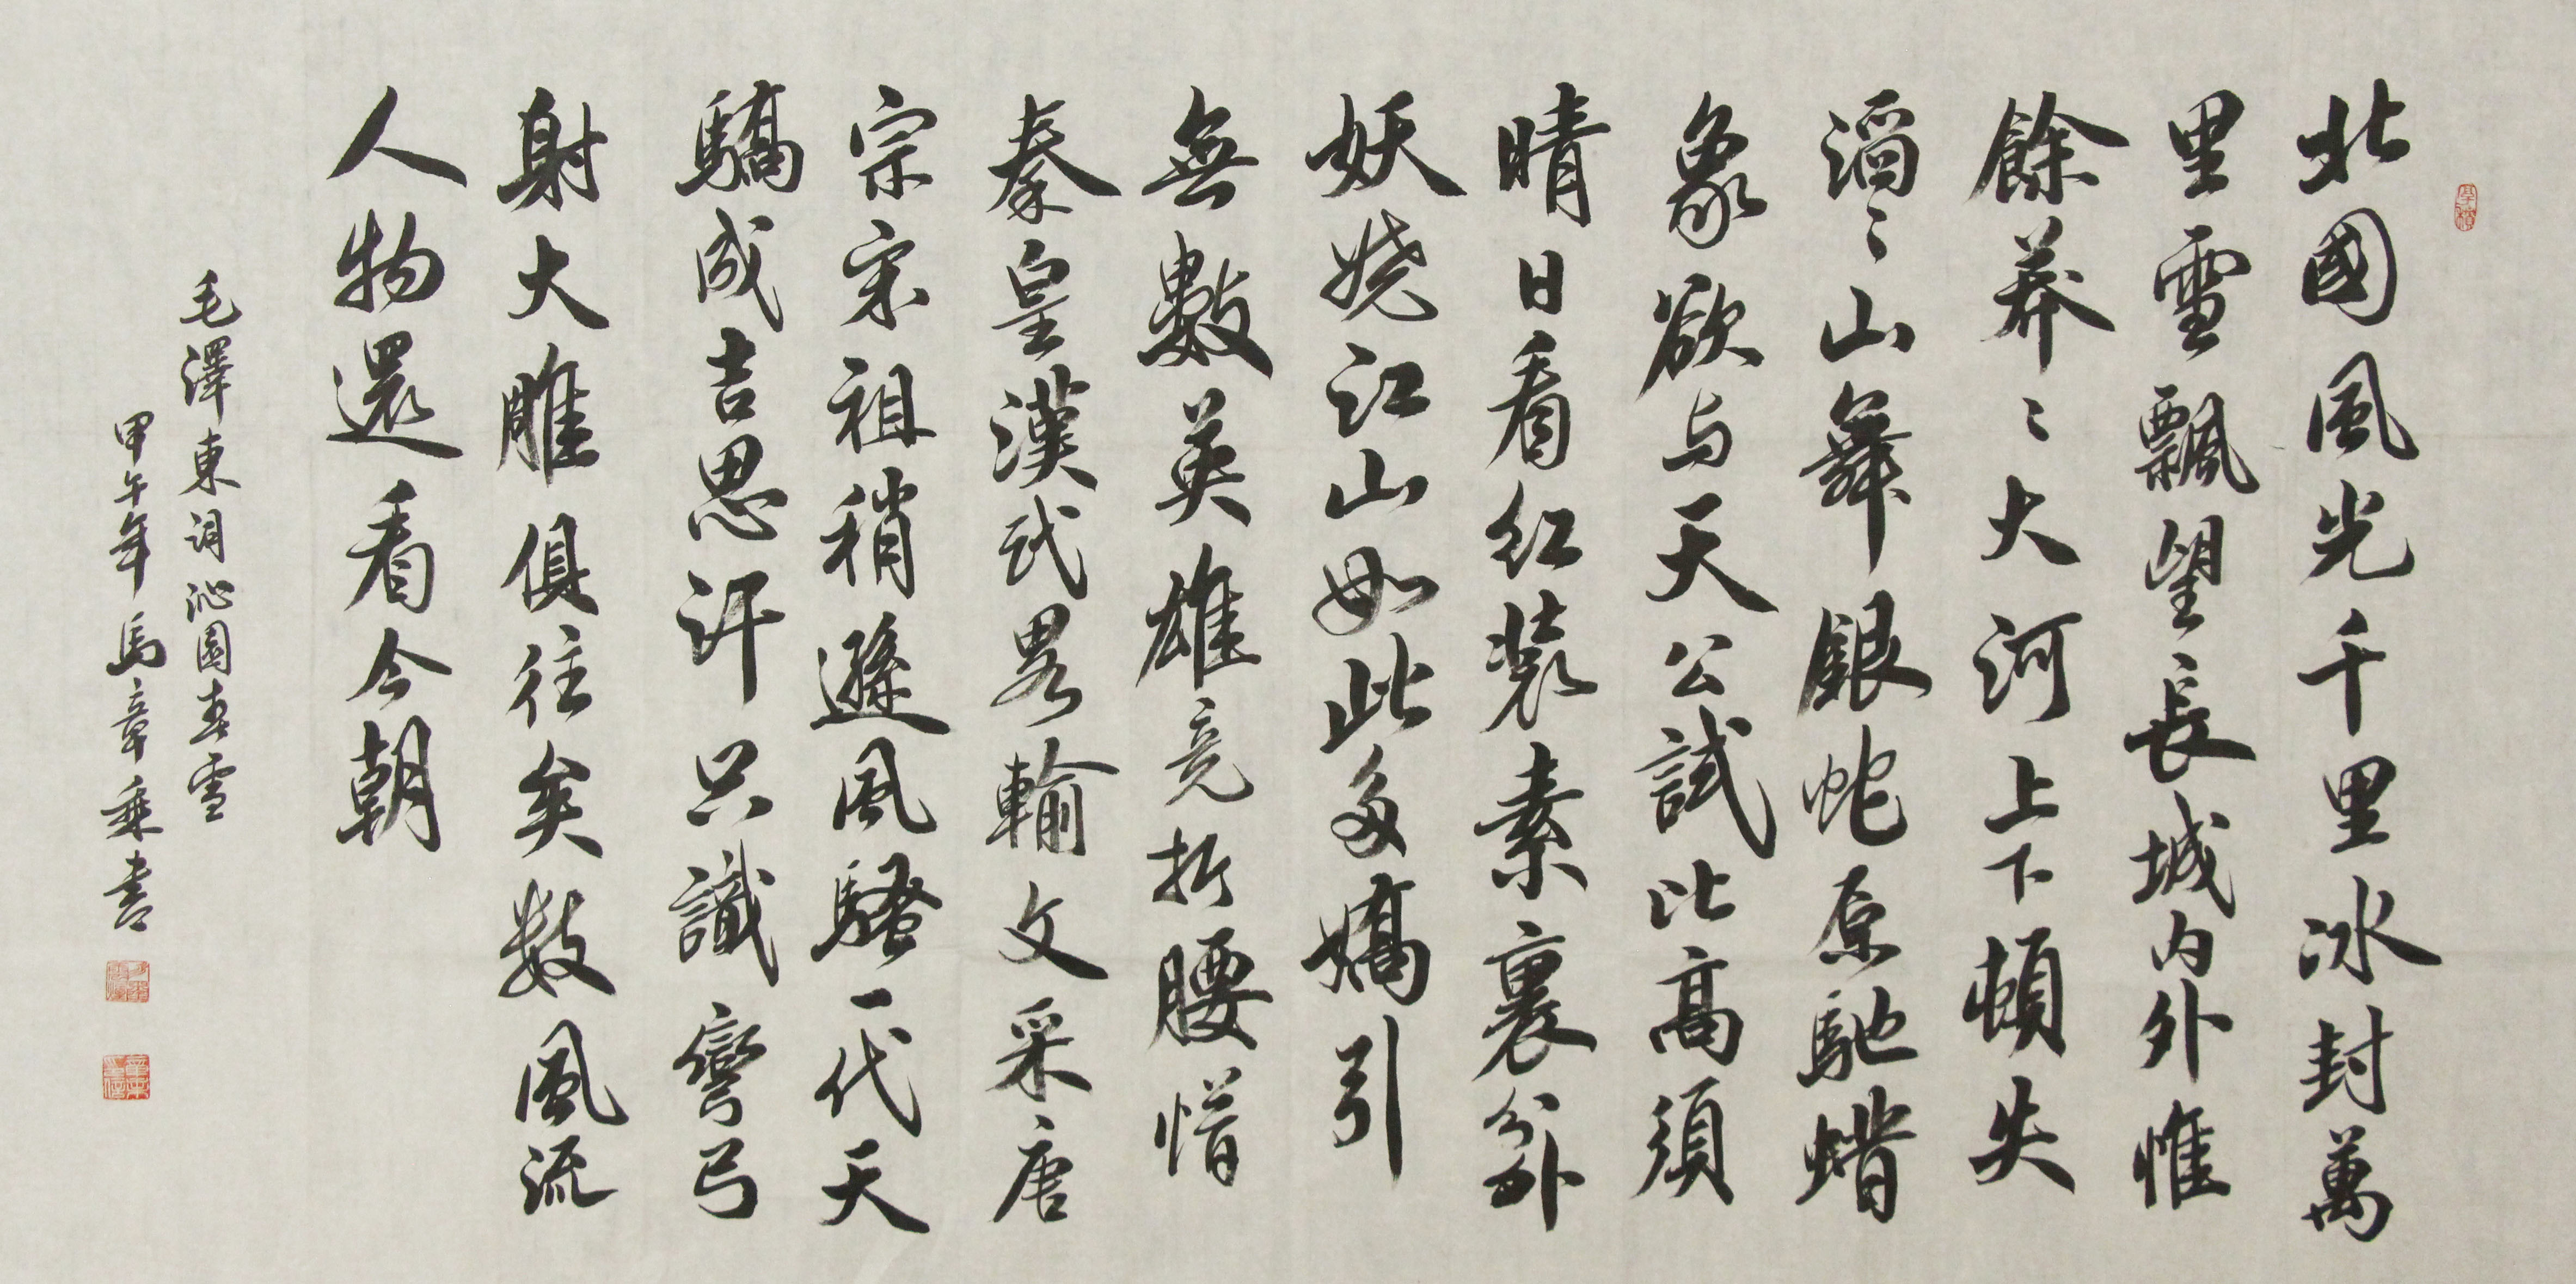 北國風光千里冰封萬
里雪飄望長城內外惟
餘莽〻大河上下頓失
滔〻山舞銀蛇原馳蜡
象欲与天公試比高須
晴日看红裝素裹分外
妖嬈江山如此多嬌引
無數英雄竞折腰惜
秦皇漢武畧輸文采唐
宗宋祖稍遜風騷一代天
驕成吉思汗只識彎弓
射大雕俱往矣数風流
人物還看今朝
毛澤東词沁園春雪
甲午年馬章乘書